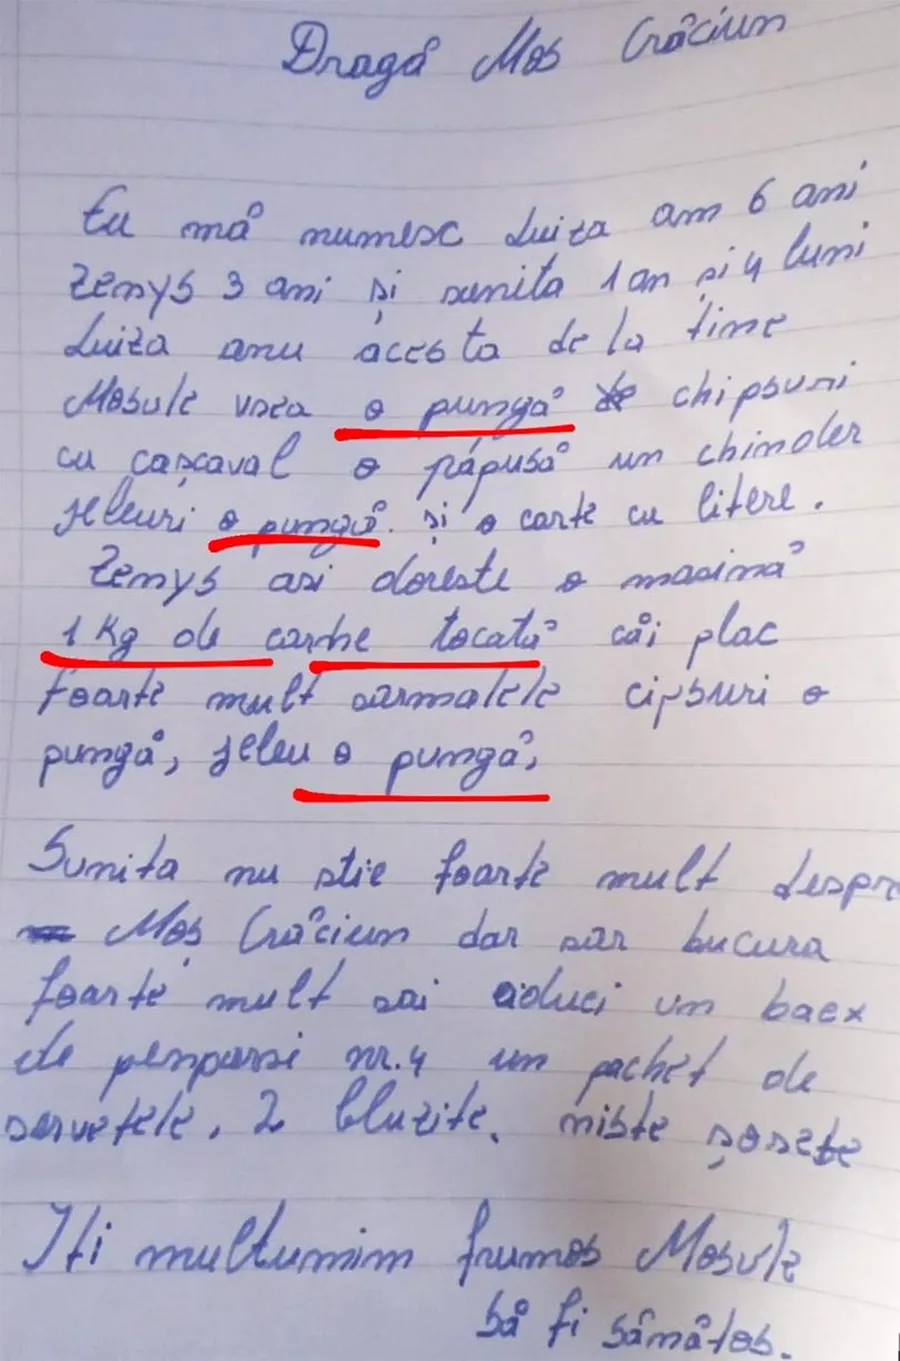 Dragă Mos Crăciun
Eu mă numesc Luiza am 6 ani
Zenys 3 ani și sunita 1 an și 4 luni
Luiza anu acesta de la tine
Mosule vrea o pungă de chipsuri
cu cașcaval o păpusă un chinder
jeleuri o pungă. și o carte cu litere.
Zenys asi doreste o masină
1 Kg de carne tocată căi plac
foarte mult sarmalele cipsuri o
pungă, jeleu o pungă,
Sunita nu stie foarte mult despre
Moș Crăciun dar sar bucura
foarte mult sai aduci un baex
de pemparsi nr.4 un pachet de
servetele, 2 bluzite, niste șosete
Iti multumim frumos Mosule
să fi sănătos.